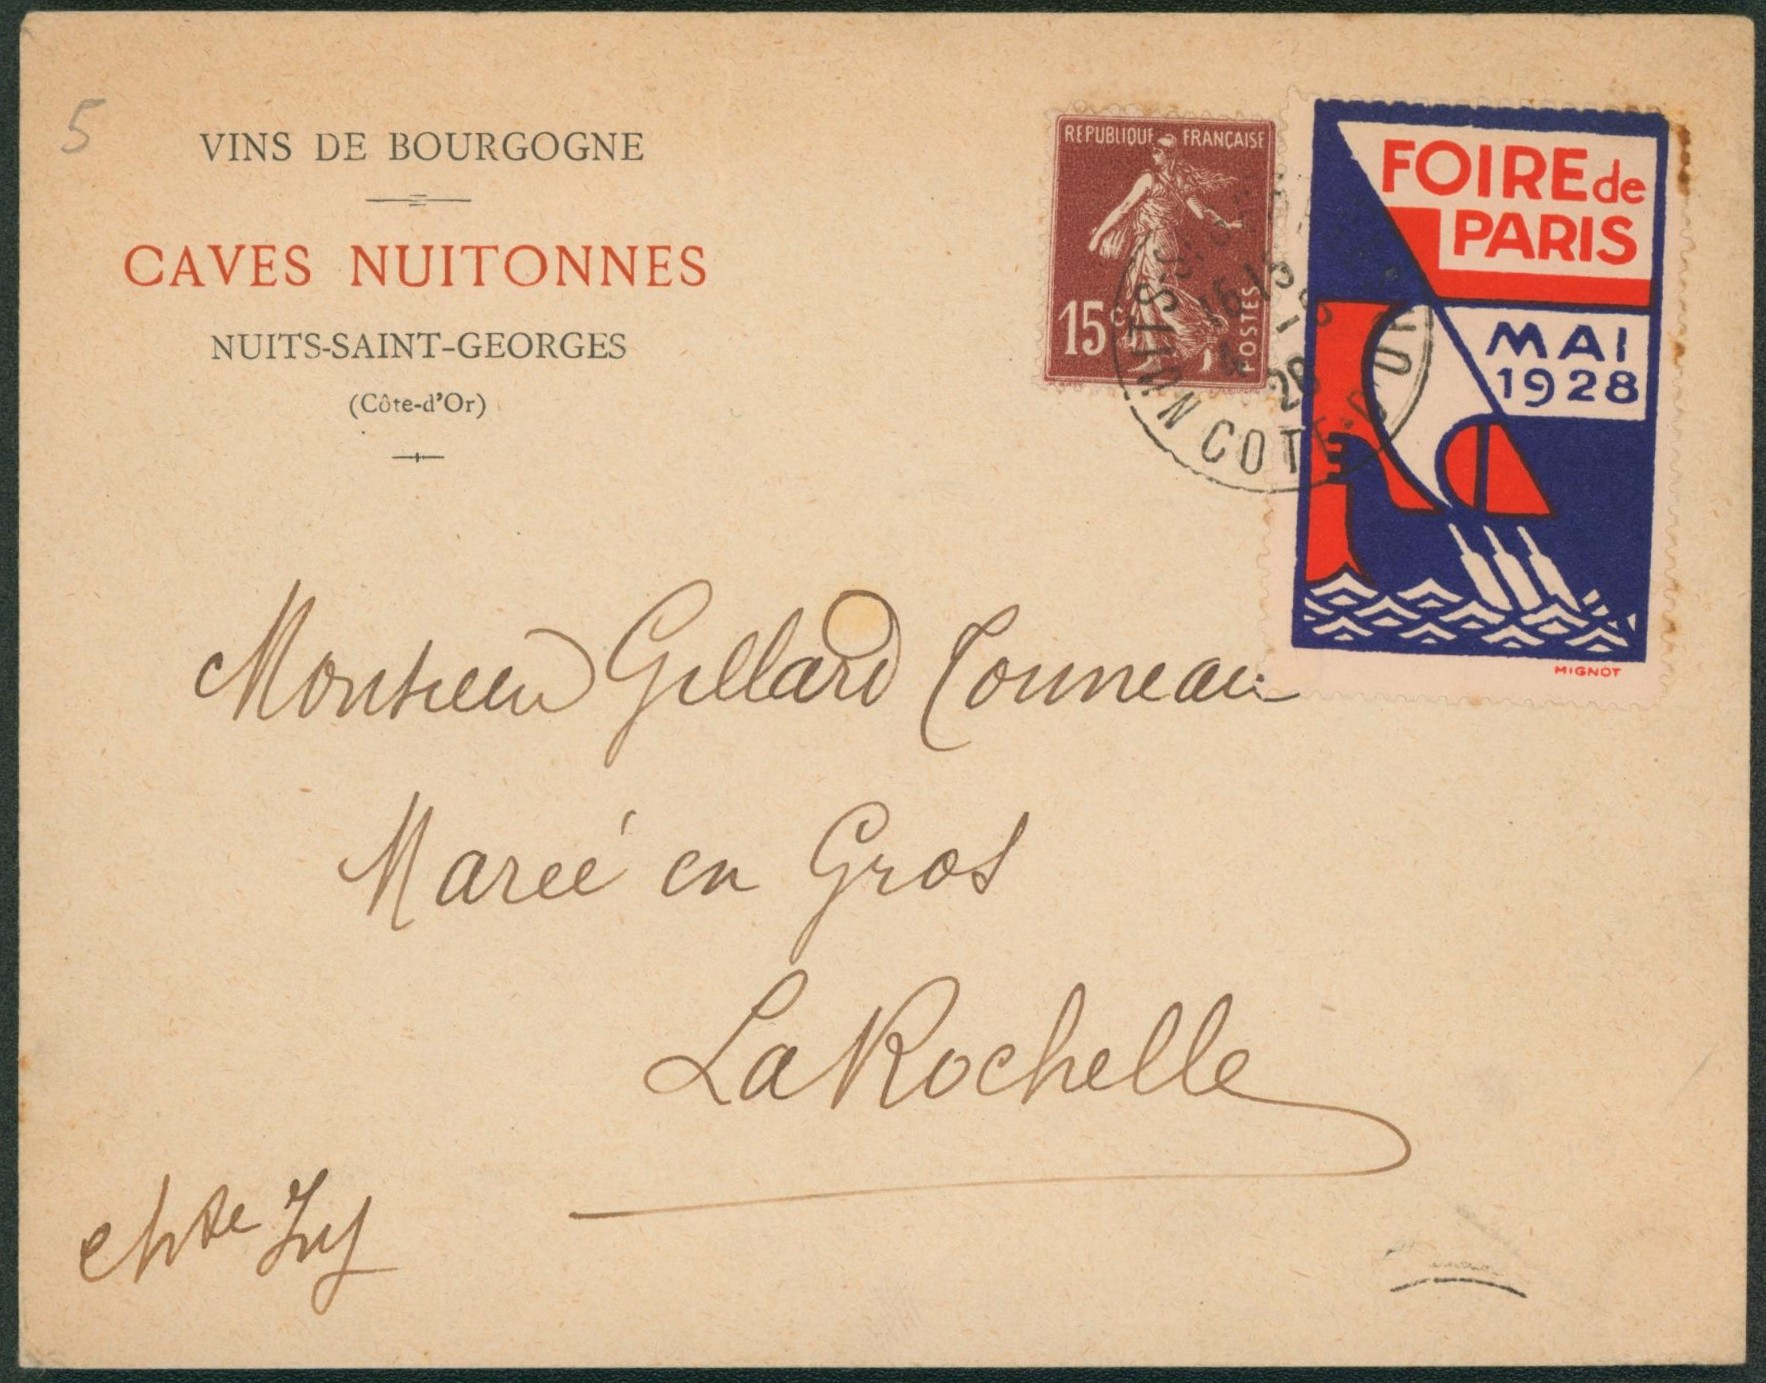 5
VINS DE BOURGOGNE
CAVES NUITONNES
NUITS-SAINT-GEORGES
(Côte-d'Or)
REPUBLIQUE FRANÇAISE
15c
POSTES
NUITS COTE-D'OR
16 15
28
FOIRE de
PARIS
MAI
1928
MIGNOT
Monsieur Gillard Conneau
Marée en Gros
La Rochelle